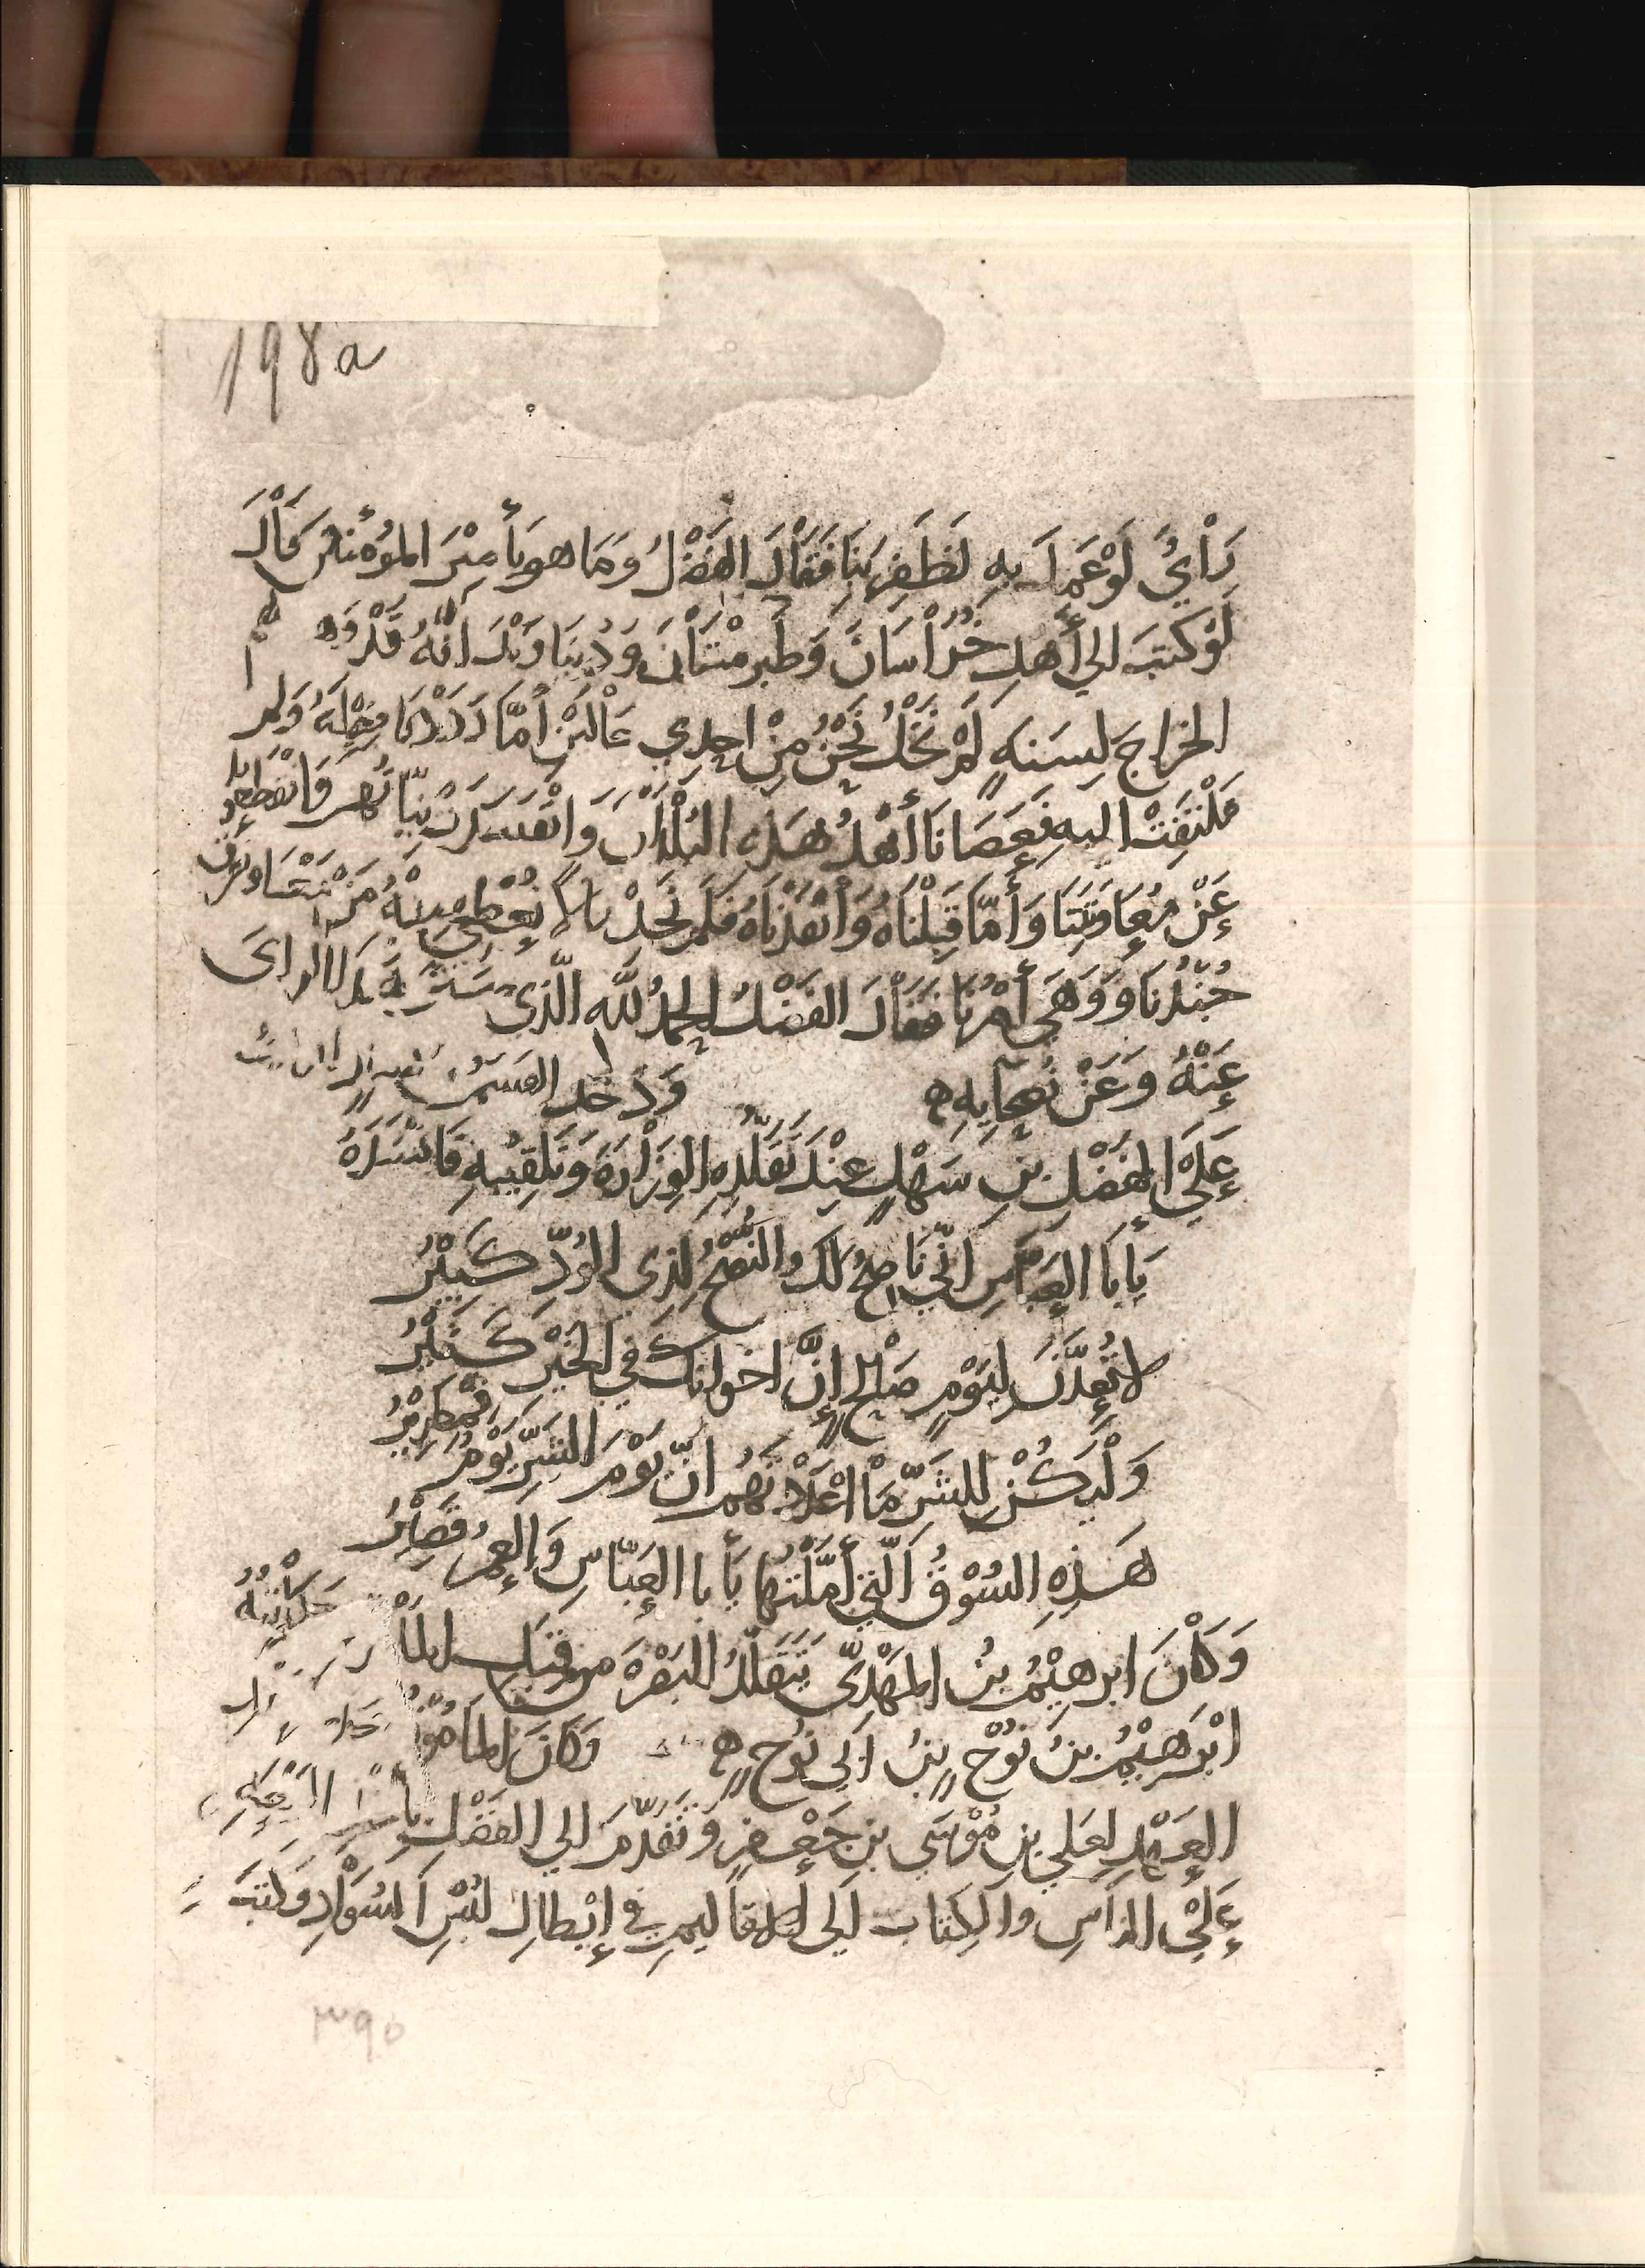 198a
رَأْيٌ لَوْ عَمِلَ بِهِ لَظَفِرَ بِنَا فَقَالَ الفَضْلُ وَمَا هو يَأمِيْرَ المؤُمنين قَاْلَ
لَوْ كتبَ الي أَهلِ خُرَاْسَانَ وَطَبرِسْتَاْنَ وَدُنبَاوَنْدَ انَّهُ قَدْ وَهبَ لهم
الخراجَ لِسَنهٍ لَمْ نَخْلُ نَحْنُ مِنْ احدي حَالَيْنِ أمَّا رَدَدْنَا فِعْلَهُ وَلم
نَلْتفِتْ اليهِ فَعَصَانَا أَهْلُ هَذِهِ البُلْدَاْنِ وَانْفَسَدَتْ نِيَّاتُهُمْ فَانْقطَعوا
عَنْ مُعَاوَنَتِنَا وَأَمَّا قَبِلْنَاهُ وَأَنْفَذْنَاهُ فَلَم نَجِدْ مالاً نُعْطِي مِنْهُ مَنْ مَعَنَا وَتفرق
جُنْدُنَا وَوَهَي أَمْرُنَا فَقَاْلَ الفَضْلُ الحمدُ للَّهِ الَّذي سَتَرَ هَذَا الراىَ
عَنْهُ وَعَنْ صَحَابِهِ ه وَدَخَلَ القسمُ
عَلَيْ الفَضْلِ بنِ سَهْلٍ عِنْدَ تَقَلُّدِهِ الوِزَاْرَةَ وَتلقِيْبهِ فَانْشَدَهُ
يَابَا العَبَّاسِ انِّي نَاصِحٌ لَكَ والنُّصْحُ لِذِي الوُدِّ كَبِيْرُ
لا تُعِدَّنَّ ليَوْمٍ صَاْلحٍ إنَّ اخوانكَ في الخَيْرِ كَثِيْرُ
وَلْيَكُنْ لِلشَّرِّ مَا أعْدَدْتَهُم انَّ يَوْمَ الشَّرِّ يَوْمٌ قَمْطَرِيْرُ
هَذِهِ السُوْقُ الَّتي أمَّلْتُها يَأبا العَبَّاسِ وَالعمرُ قَصِيْرُ
وَكَاْنَ ابرهِيْمُ بنُ المهْدِيِّ يتَقَلَّدُ البَصْرةَ من قِبَلِ المأمون وَكَاْتِبُهُ
ابْرَهِيْمُ بنُ نُوْحِ بنُ ابي نُوْحٍ ه وَكَانَ المَأمُوْنُ
العَهْدِ لِعَلي بنِ مُوْسَي بنِ جَعْفرٍ وَتقَدَّمَ الي الفَضْلِ بأخذ البَيْعَةِ
عَلَيْ النَّاسِ والكِتَابِ الَى الاقاليمِ في إبْطالِ لُبْسِ السَوَاْدِ وَكتبَ
٣٩٥